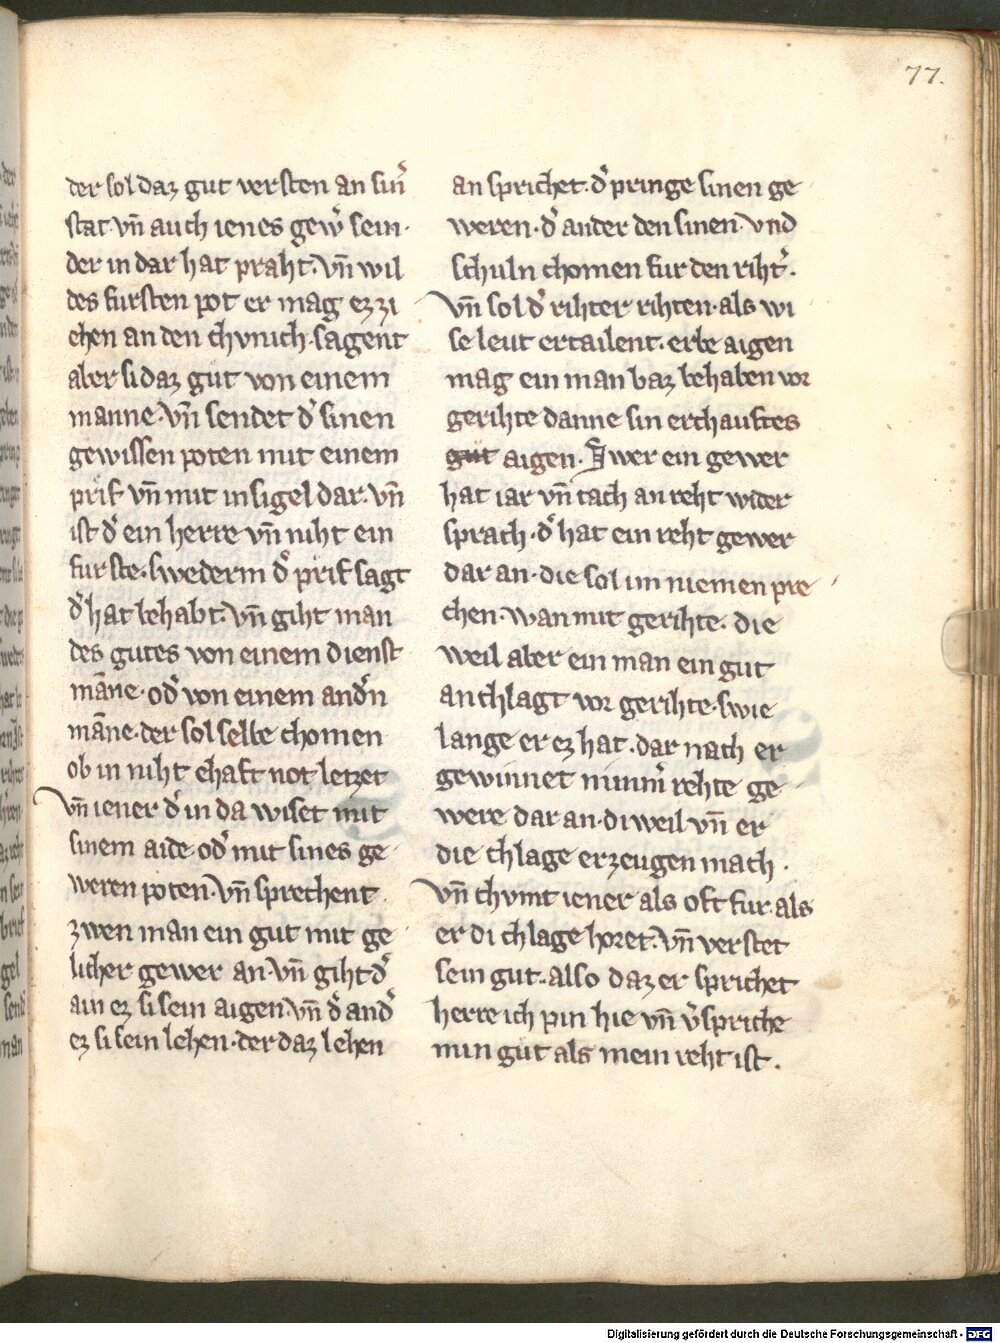 77.
der sol daz gut versten an sin̄
stat vn̄ auch ienes gew̄ sein·
der in dar hat praht. vn̄ wil
des fursten pot er mag ez zi
ehen an den chvnich. sagent
aber si daz gut von einem
manne. vn̄ sendet d̓ sinen
gewissen poten mit einem
prif vn̄ mit insigel dar. vn̄
ist d̓ ein herre vn̄ niht ein
furste. swederm d̓ prif sagt
d̓ hat behabt. vn̄ giht man
des gutes von einem dienst
māne. od̓ von einem and̓n
māne. der sol selbe chomen
ob in niht ehaft not letzet
vn̄ iener d̓ in da wiset mit
sinem aide od̓ mit sines ge
weren poten. vn̄ sprechent
zwen man ein gut mit ge
licher gewer an. vn̄ giht d̓
ain ez si sein aigen. vn̄ d̓ and̓
ez si sein lehen. der daz lehen
an sprichet. d̓ pringe sinen ge
weren. d̓ ander den sinen. vnd
schuln chomen fur den riht̓.
vn̄ sol d̓ rihter rihten. als wi
se leut ertailent. erbe aigen
mag ein man baz behaben vor
gerihte danne sin erchauftes
gut aigen. Swer ein gewer
hat iar vn̄ tach an reht wider
sprach. d̓ hat ein reht gewer
dar an. die sol im niemen pre
chen. wan mit gerihte. die
weil aber ein man ein gut
an chlagt vor gerihte. swie
lange er ez hat. dar nach er
gewinnet nimm̓ rehte ge
were dar an. di weil vn̄ er
die chlage erzeugen mach.
vn̄ chvmt iener als oft fur. als
er di chlage horet. vn̄ verstet
sein gut. also daz er sprichet
herre ich pin hie vn̄ v̓spriche
min gut als mein reht ist.
Digitalisierung gefördert durch die Deutsche Forschungsgemeinschaft - DFG